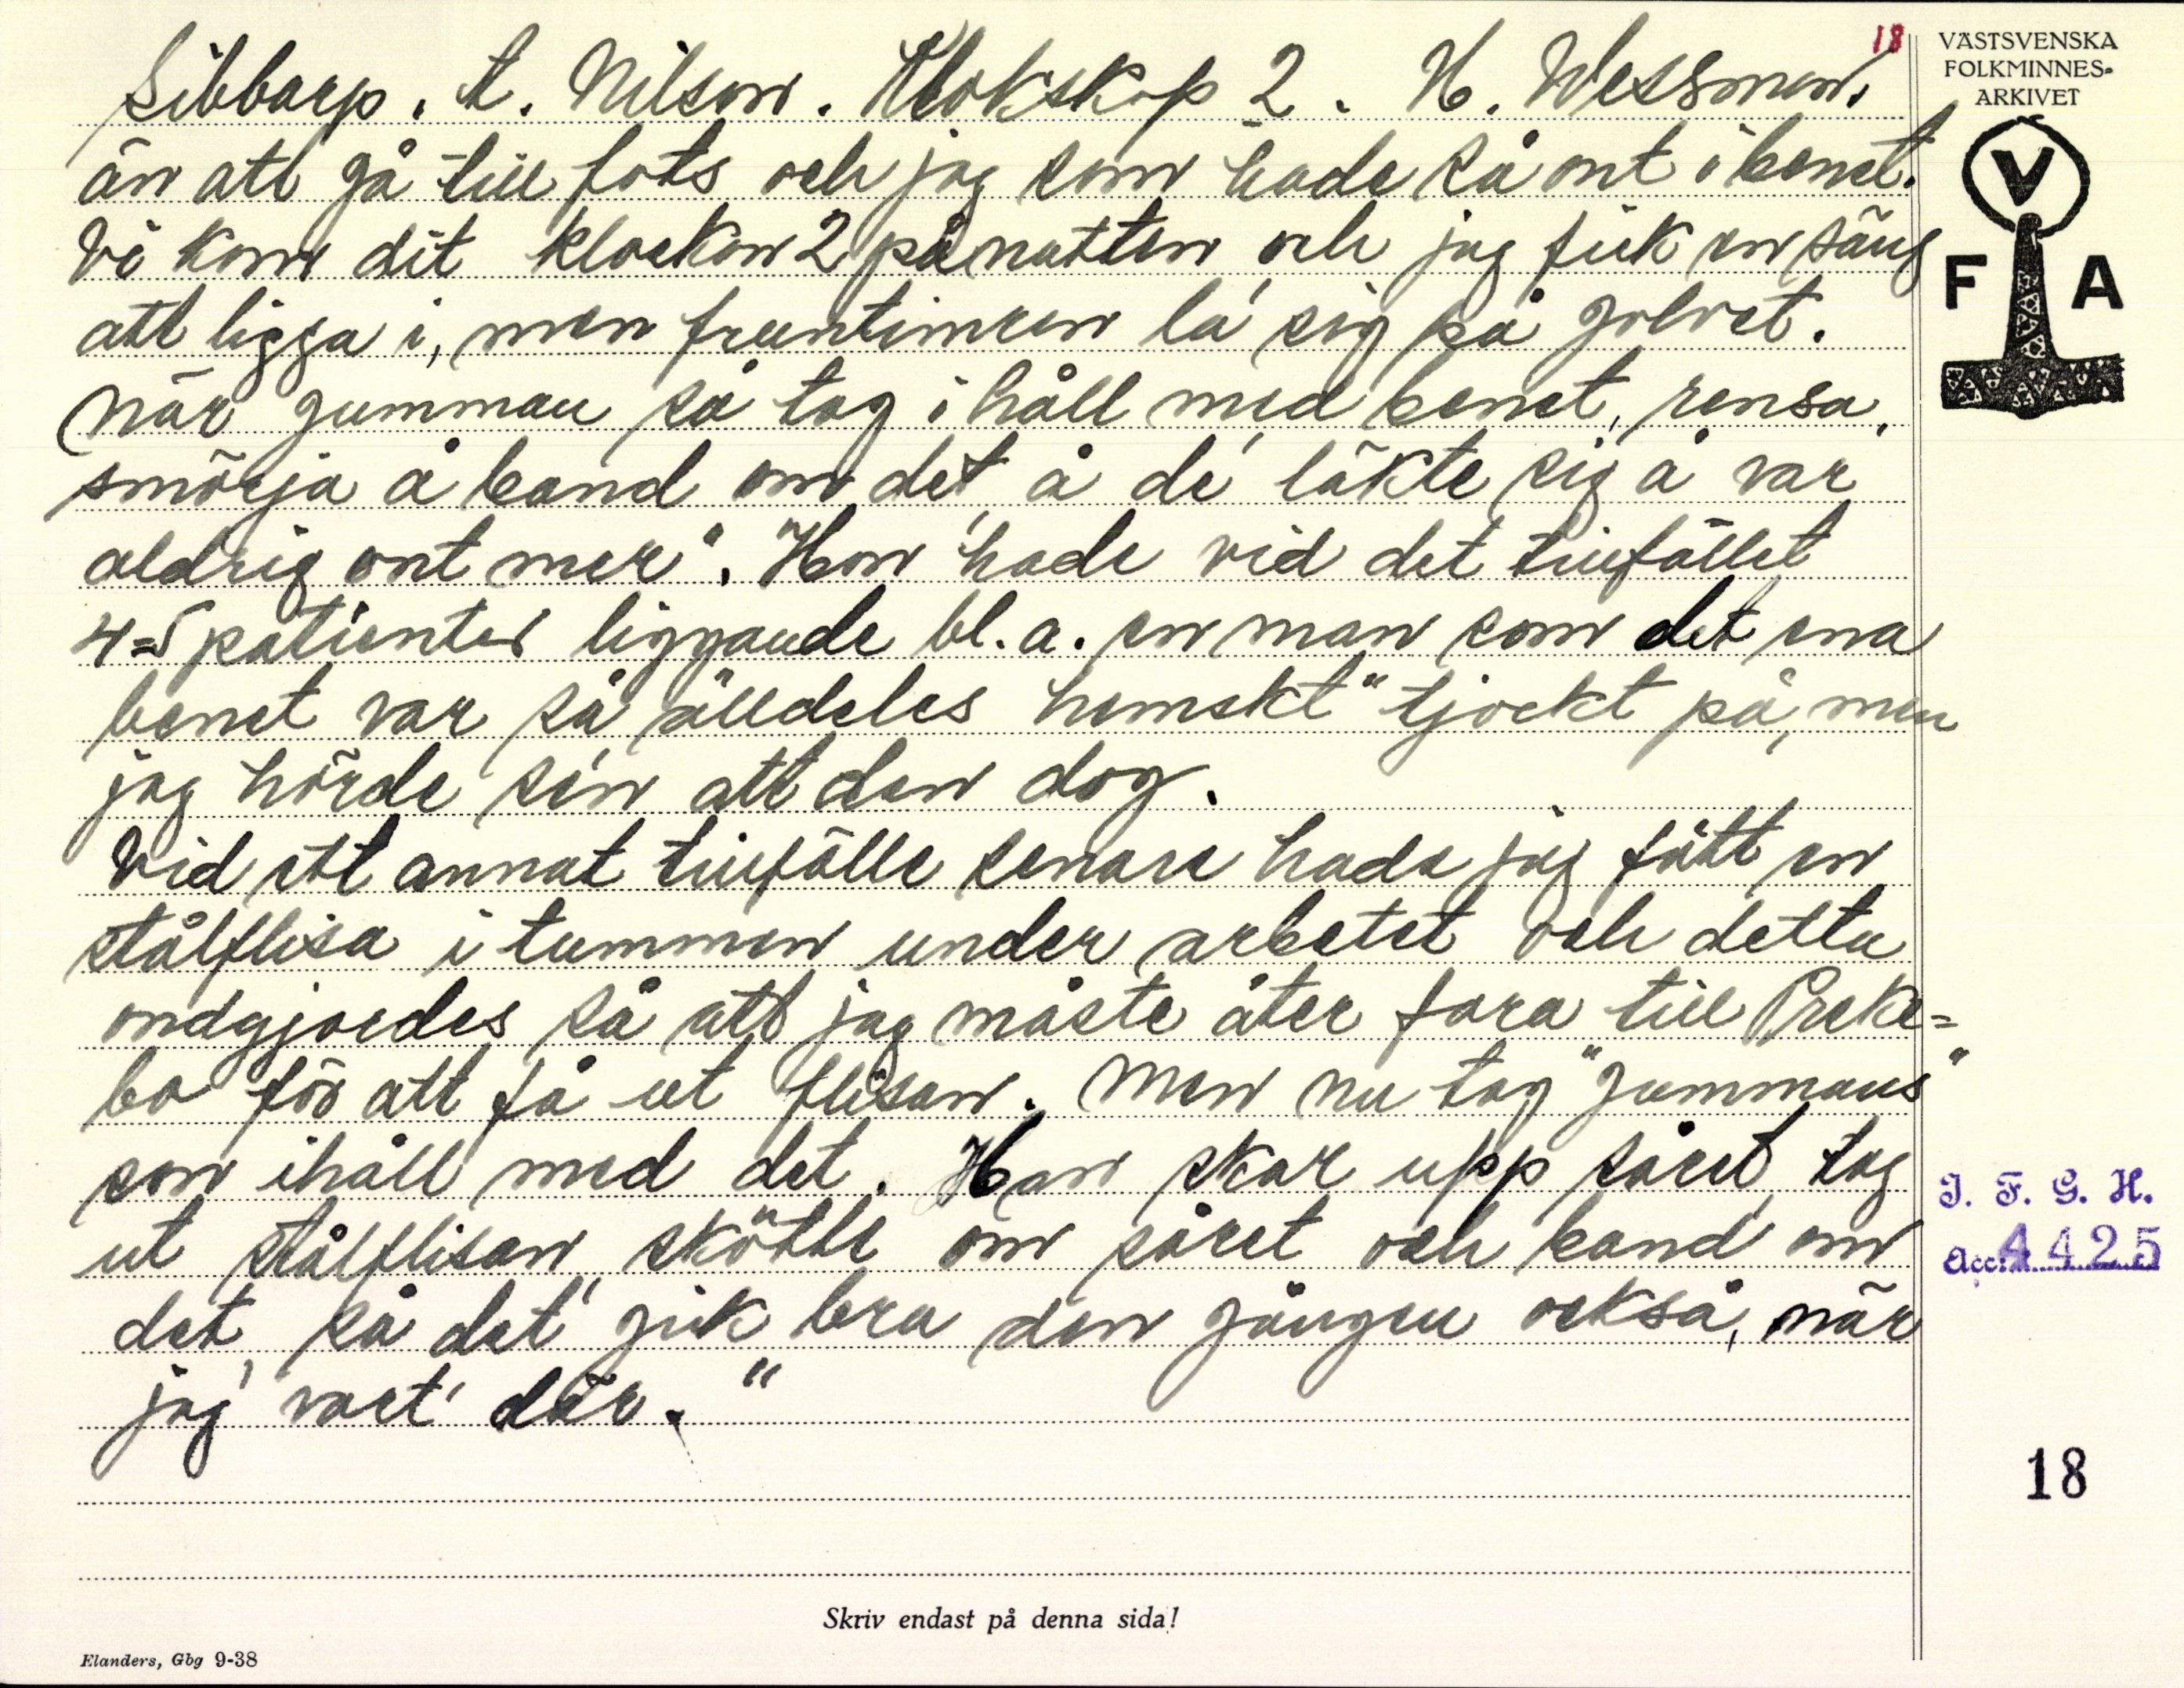 18
VÄSTSVENSKA
FOLKMINNES-
ARKIVET
V
F A
Sibbarp. A. Nilson. Klokskap 2. H. Wessman.
än att gå till fots och jag som hade så ont i benet.
Vi kom dit klockan 2 på natten och jag fick en säng
att ligga i, men fruntimren la' sig på golvet.
När gumman så tog ihåll med benet, rensa,
smörja å band om det, å de' läkte sig å var
aldrig ont mer". Hon hade vid det tillfället
4=5 patienter liggande bl.a. en man som det ena
benet var så alldeles hemskt" tjockt på, men
jag hörde se'n att den dog.
Vid ett annat tillfälle senare hade jag fått en
stålflisa i tummen under arbetet och detta
ondgjordes så att jag måste åter fara till Preke=
bo för att få ut flisan. Men nu tog "gummans"
son ihåll med det. Han skar upp såret, tog
ut stålflisan, skötte om såret och band om
det, så det gick bra den gången också, när
jag' vart' där."
I. F. G. H.
Acc. 4425
18
Skriv endast på denna sida!
Elanders, Gbg 9-38